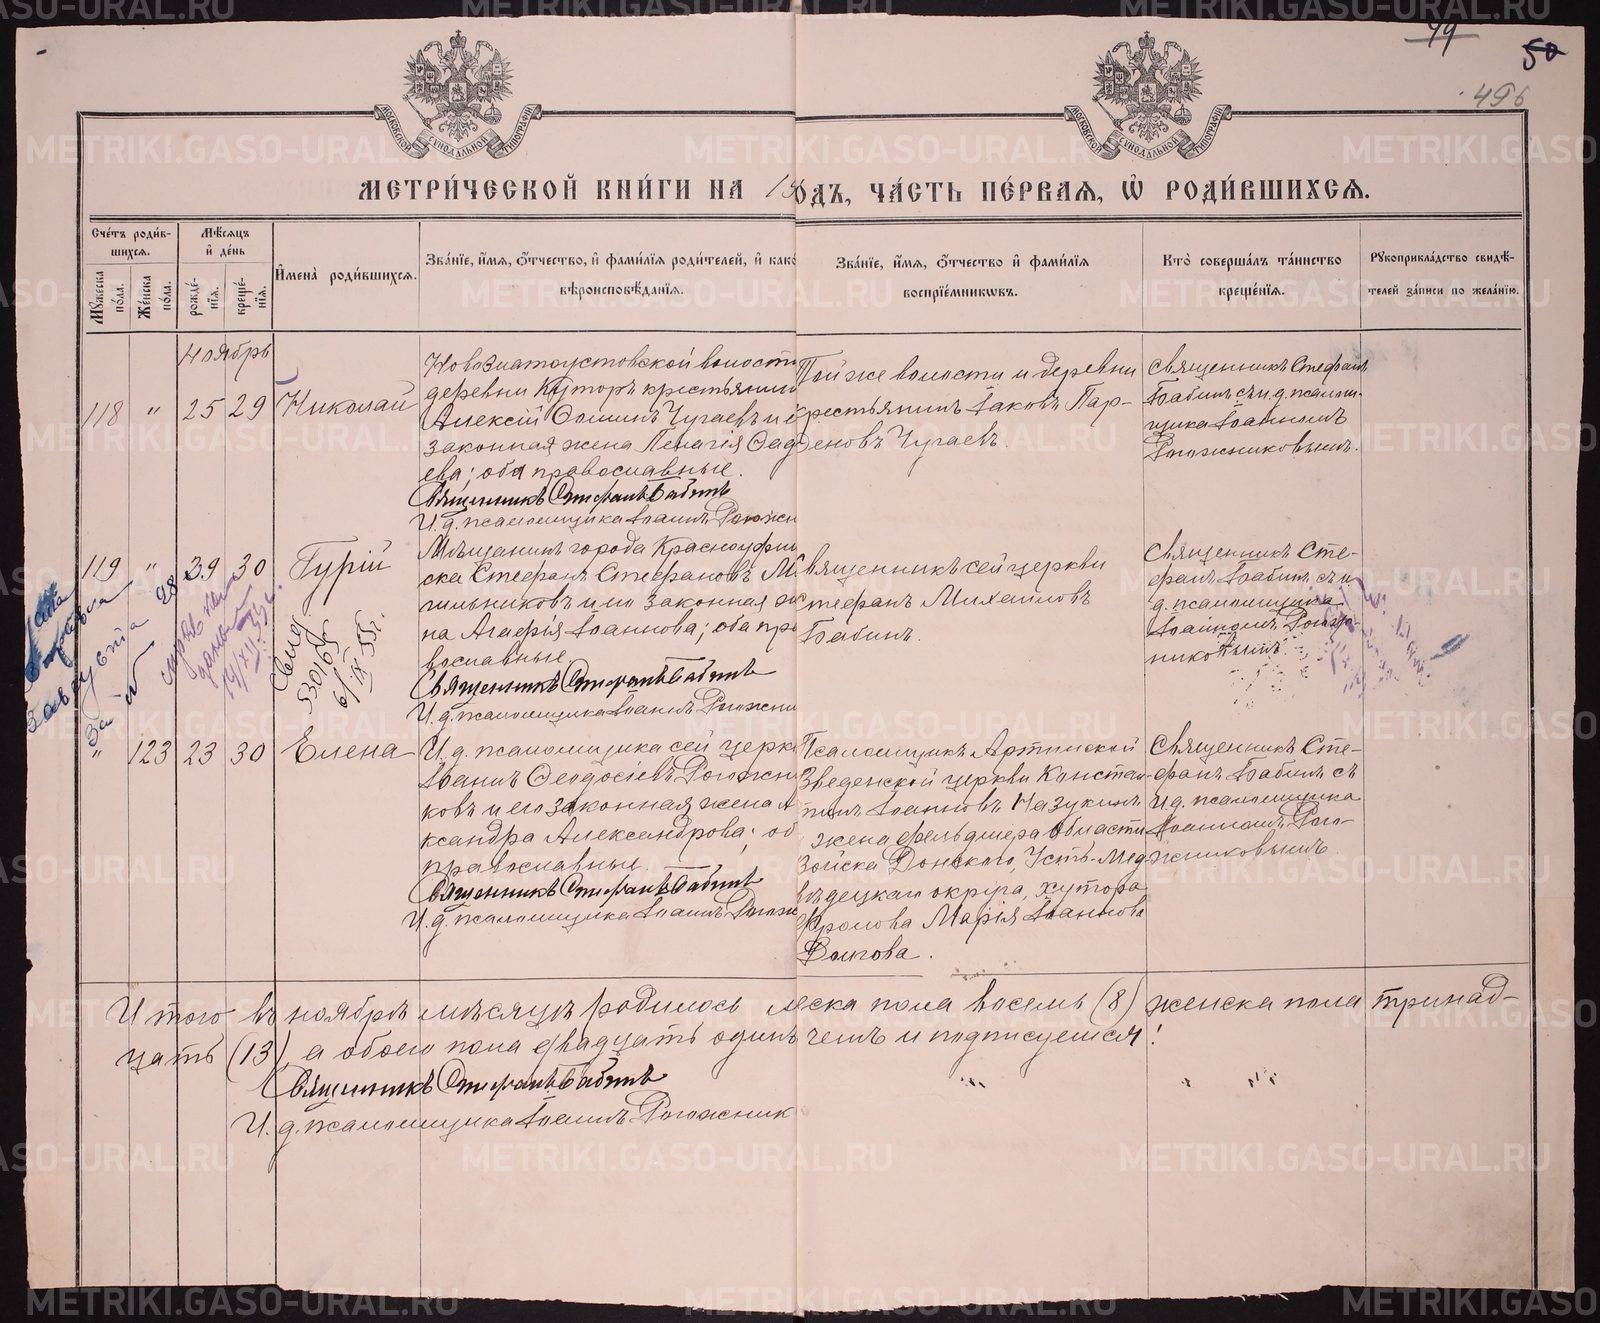 49
50
49б
МОСКОВСКОЙ СѴНОДАЛЬНОЙ ТИПОГРАФІИ
МОСКОВСКОЙ СѴНОДАЛЬНОЙ ТИПОГРАФІИ
МЕТРИ́ЧЕСКОЙ КНИ́ГИ НА 19
ОДЪ, ЧА́СТЬ ПЕ́РВАЯ, Ѡ РОДИ́ВШИХСЯ.
Сче́тъ роди́в-
шихся.
Мужеска по́ла.
Же́нска по́ла.
Мѣ́сяцъ
и де́нь
рожде́-
нїя.
креще́-
нїя.
Имена̀ роди́вшихся.
Зва́нїе, и́мя, о́тчество, и фами́лїя роди́телей, и како
вѣроисповѣ́данїя.
Зва́нїе, и́мя, о́тчество и фами́лїя
воспрїе́мниковъ.
Кто̀ соверша́лъ та́инство
креще́нїя.
Рукоприкла́дство свидѣ́-
телей за́писи по жела́нїю.
Ноябрь
118 " 25 29 Николай
Новозлатоустовской волости
деревни Хуторъ крестьянин
Алексій Ѳоминъ Чугаевъ и е
законная жена Пелагія Ѳад
ева; оба православные.
Священникъ Стефанъ Бабинъ
И. д. псаломщика Іоаннъ Рогожни
Той же волости и деревни
крестьянинъ Іаковъ Пар-
ѳеновъ Чугаевъ.
Священникъ Стефанъ
Бабинъ съ и. д. псалом-
щика Іоанномъ
Рогожниковымъ.
119 " 28 29 30 Гурій
Мѣщанинъ города Красноуфим
ска Стефанъ Стефановъ М
ильниковъ и его законная же
на Агафія Іоаннова; оба пра
вославные.
Священникъ Стефанъ Бабинъ
И. д. псаломщика Іоаннъ Рогожни
Священникъ сей церкви
Стефанъ Михаиловъ
Бабинъ.
Священникъ Сте-
фанъ Бабинъ съ и.
д. псаломщика
Іоанномъ Рогож-
никовымъ.
" 123 23 30 Елена
И. д. псаломщика сей церкв
Іоаннъ Ѳеодосіевъ Рогожни
ковъ и его законная жена Ал
ксандра Александрова; об
православные.
Священникъ Стефанъ Бабинъ
И. д. псаломщика Іоаннъ Рогожн
Псаломщикъ Артинской
Введенской церкви Констан-
тинъ Іоанновъ Назукинъ
жена фельдшера Области
Войска Донского, Усть-Мед-
вѣдецкаго округа, хутора
Фролова Марія Іоаннова
Волкова.
Священникъ Сте-
фанъ Бабинъ съ
и. д. псаломщика
Іоанномъ Рого-
жниковымъ.
Итого въ ноябрѣ мѣсяцѣ родилось мжска пола восемь (8) женска пола тринад-
цать (13), а обоего пола двадцать одинъ чемъ и подписуемся!
Священникъ Стефанъ Бабинъ
И. д. псаломщика Іоаннъ Рогожник
METRIKI.GASO-URAL.RU